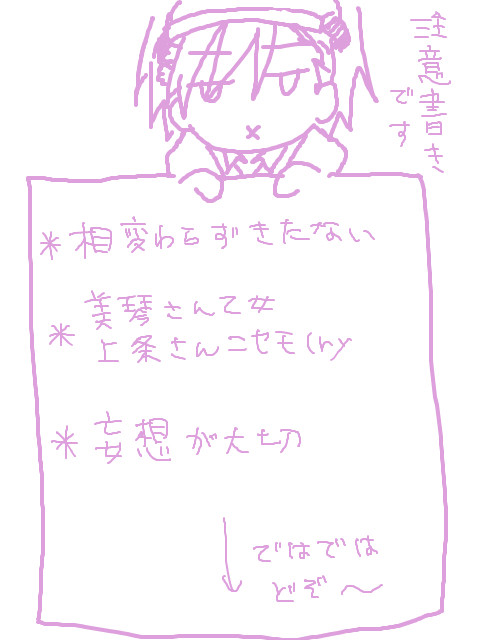 注意書き
です
*相変わらずきたない
*美琴さんて女
上条さんニセモ(ry
*妄想が大切
↓ではでは
どぞ〜